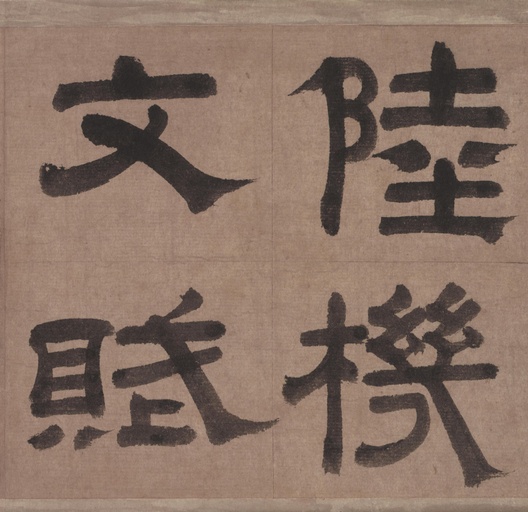 陸機
文賦